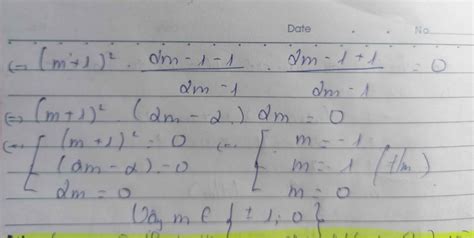 Date No
(=) (m+1)² . 2m-1-1 / 2m-1 . 2m-1+1 / 2m-1 = 0
(=) (m+1)² . (2m-2.) 2m = 0
(=) [ (m+1)² = 0 (=) [ m = -1
(2m-2) = 0 m = 1 (t/m)
2m = 0 m = 0
Vậy m ∈ { ±1; 0 }